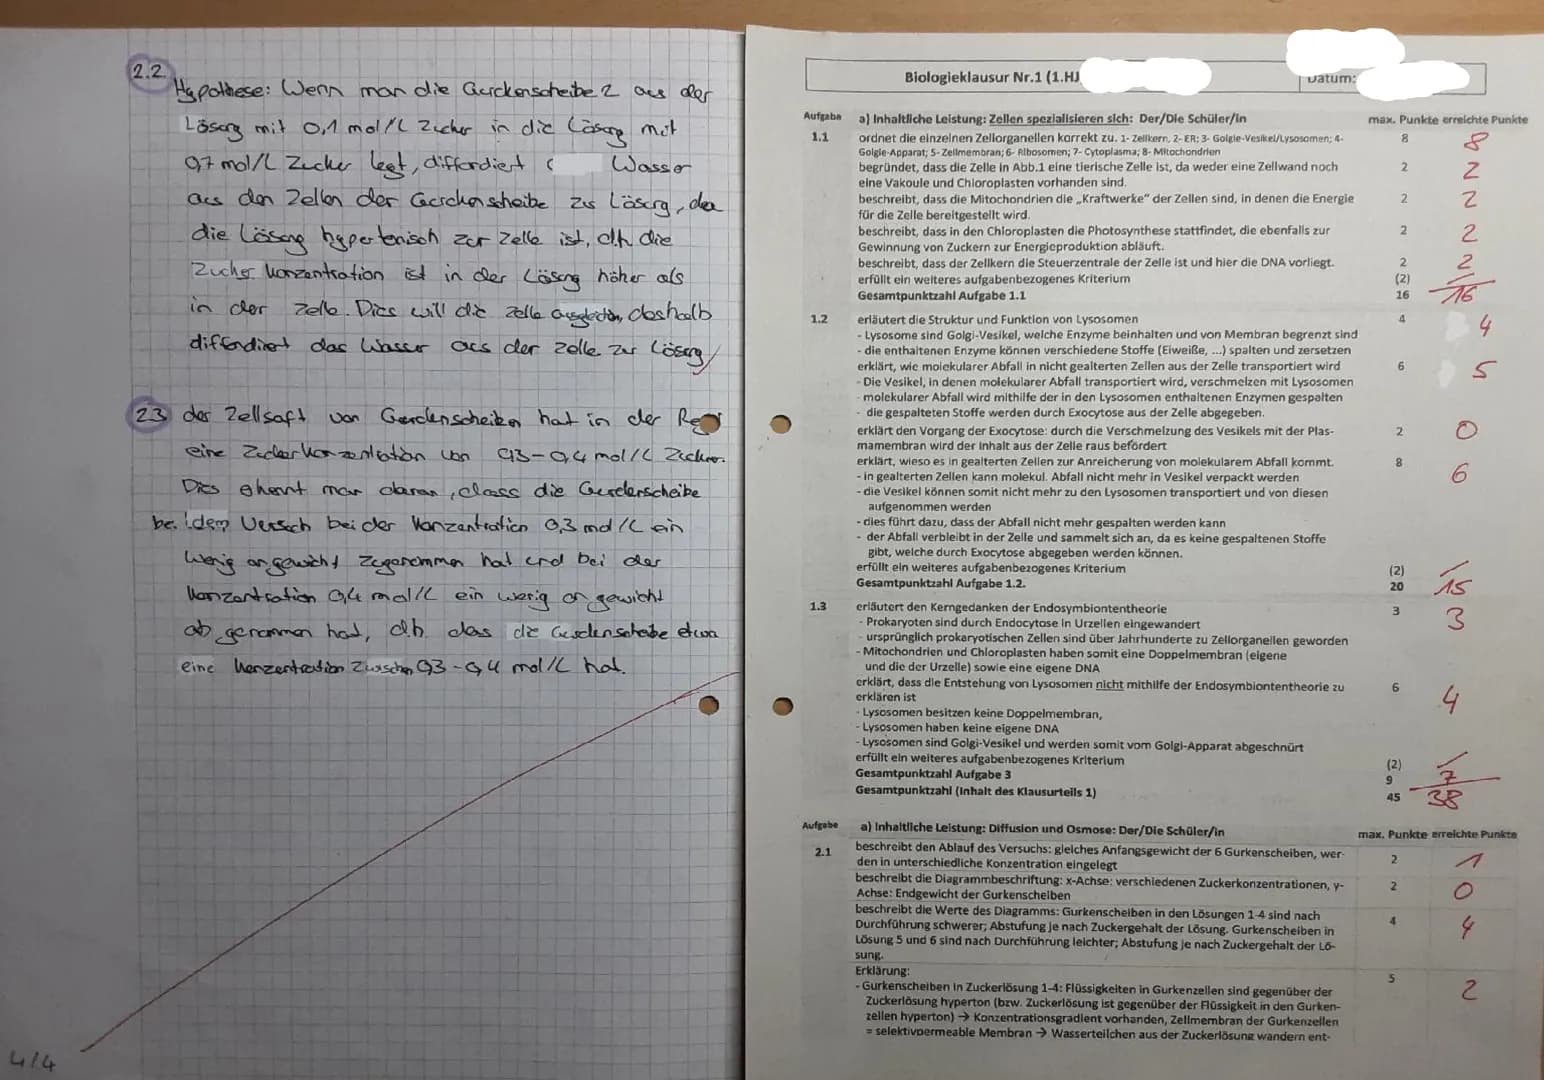 2.2
Hypothese: Wenn man die Gurkenscheibe 2 aus der
Lösung mit 0,1 mol/L Zucker in die Lösung mit
0,7 mol/L Zucker legt, diffundiert Wasser
aus den Zellen der Gurkenscheibe zur Lösung, da
die Lösung hypertonisch zur Zelle ist, d.h. die
Zucker konzentration ist in der Lösung höher als
in der Zelle. Dies will die Zelle ausgleichen, deshalb
diffundiert das Wasser aus der Zelle zur Lösung
2.3 der Zellsaft von Gurkenscheiben hat in der
eine Zuckerkonzentration von 0,3-0,4 mol/L Zucker.
Dies erkennt man daran, dass die Gurkenscheibe
bei dem Versuch bei der Konzentration 0,3 mol/L ein
wenig an gewicht zugenommen hat und bei der
Konzentration 0,4 mol/L ein wenig an gewicht
ab genommen hat, d.h. dass die Gurkenscheibe etwa
eine Konzentration zwischen 0,3-0,4 mol/L hat.
4/4
Biologieklausur Nr.1 (1.HJ
Datum:
Aufgabe a) Inhaltliche Leistung: Zellen spezialisieren sich: Der/Die Schüler/in max. Punkte erreichte Punkte
1.1 ordnet die einzelnen Zellorganellen korrekt zu. 1- Zellkern, 2- ER; 3- Golgie-Vesikel/Lysosomen; 4- 8 8
Golgie-Apparat; 5- Zellmembran; 6- Ribosomen; 7- Cytoplasma; 8- Mitochondrien
begründet, dass die Zelle in Abb.1 eine tierische Zelle ist, da weder eine Zellwand noch 2 2
eine Vakoule und Chloroplasten vorhanden sind.
beschreibt, dass die Mitochondrien die „Kraftwerke" der Zellen sind, in denen die Energie 2 2
für die Zelle bereitgestellt wird.
beschreibt, dass in den Chloroplasten die Photosynthese stattfindet, die ebenfalls zur 2 2
Gewinnung von Zuckern zur Energieproduktion abläuft.
beschreibt, dass der Zellkern die Steuerzentrale der Zelle ist und hier die DNA vorliegt. 2 2
erfüllt ein weiteres aufgabenbezogenes Kriterium (2) –
Gesamtpunktzahl Aufgabe 1.1 16 16
1.2 erläutert die Struktur und Funktion von Lysosomen 4 4
- Lysosome sind Golgi-Vesikel, welche Enzyme beinhalten und von Membran begrenzt sind
- die enthaltenen Enzyme können verschiedene Stoffe (Eiweiße, ...) spalten und zersetzen
erklärt, wie molekularer Abfall in nicht gealterten Zellen aus der Zelle transportiert wird 6 5
- Die Vesikel, in denen molekularer Abfall transportiert wird, verschmelzen mit Lysosomen
- molekularer Abfall wird mithilfe der in den Lysosomen enthaltenen Enzymen gespalten
- die gespalteten Stoffe werden durch Exocytose aus der Zelle abgegeben.
erklärt den Vorgang der Exocytose: durch die Verschmelzung des Vesikels mit der Plas- 2 0
mamembran wird der Inhalt aus der Zelle raus befördert
erklärt, wieso es in gealterten Zellen zur Anreicherung von molekularem Abfall kommt. 8 6
- in gealterten Zellen kann molekul. Abfall nicht mehr in Vesikel verpackt werden
- die Vesikel können somit nicht mehr zu den Lysosomen transportiert und von diesen
aufgenommen werden
- dies führt dazu, dass der Abfall nicht mehr gespalten werden kann
- der Abfall verbleibt in der Zelle und sammelt sich an, da es keine gespaltenen Stoffe
gibt, welche durch Exocytose abgegeben werden können.
erfüllt ein weiteres aufgabenbezogenes Kriterium (2) –
Gesamtpunktzahl Aufgabe 1.2. 20 15
1.3 erläutert den Kerngedanken der Endosymbiontentheorie 3 3
- Prokaryoten sind durch Endocytose in Urzellen eingewandert
- ursprünglich prokaryotischen Zellen sind über Jahrhunderte zu Zellorganellen geworden
- Mitochondrien und Chloroplasten haben somit eine Doppelmembran (eigene
und die der Urzelle) sowie eine eigene DNA
erklärt, dass die Entstehung von Lysosomen nicht mithilfe der Endosymbiontentheorie zu 6 4
erklären ist
- Lysosomen besitzen keine Doppelmembran,
- Lysosomen haben keine eigene DNA
- Lysosomen sind Golgi-Vesikel und werden somit vom Golgi-Apparat abgeschnürt
erfüllt ein weiteres aufgabenbezogenes Kriterium (2) –
Gesamtpunktzahl Aufgabe 3 9 7
Gesamtpunktzahl (Inhalt des Klausurteils 1) 45 38
Aufgabe a) Inhaltliche Leistung: Diffusion und Osmose: Der/Die Schüler/in max. Punkte erreichte Punkte
2.1 beschreibt den Ablauf des Versuchs: gleiches Anfangsgewicht der 6 Gurkenscheiben, wer- 2 1
den in unterschiedliche Konzentration eingelegt
beschreibt die Diagrammbeschriftung: x-Achse: verschiedenen Zuckerkonzentrationen, y- 2 0
Achse: Endgewicht der Gurkenscheiben
beschreibt die Werte des Diagramms: Gurkenscheiben in den Lösungen 1-4 sind nach 4 4
Durchführung schwerer; Abstufung je nach Zuckergehalt der Lösung. Gurkenscheiben in
Lösung 5 und 6 sind nach Durchführung leichter; Abstufung je nach Zuckergehalt der Lö-
sung.
Erklärung: 5 2
- Gurkenscheiben in Zuckerlösung 1-4: Flüssigkeiten in Gurkenzellen sind gegenüber der
Zuckerlösung hyperton (bzw. Zuckerlösung ist gegenüber der Flüssigkeit in den Gurken-
zellen hyperton) → Konzentrationsgradient vorhanden, Zellmembran der Gurkenzellen
= selektivpermeable Membran → Wasserteilchen aus der Zuckerlösung wandern ent-